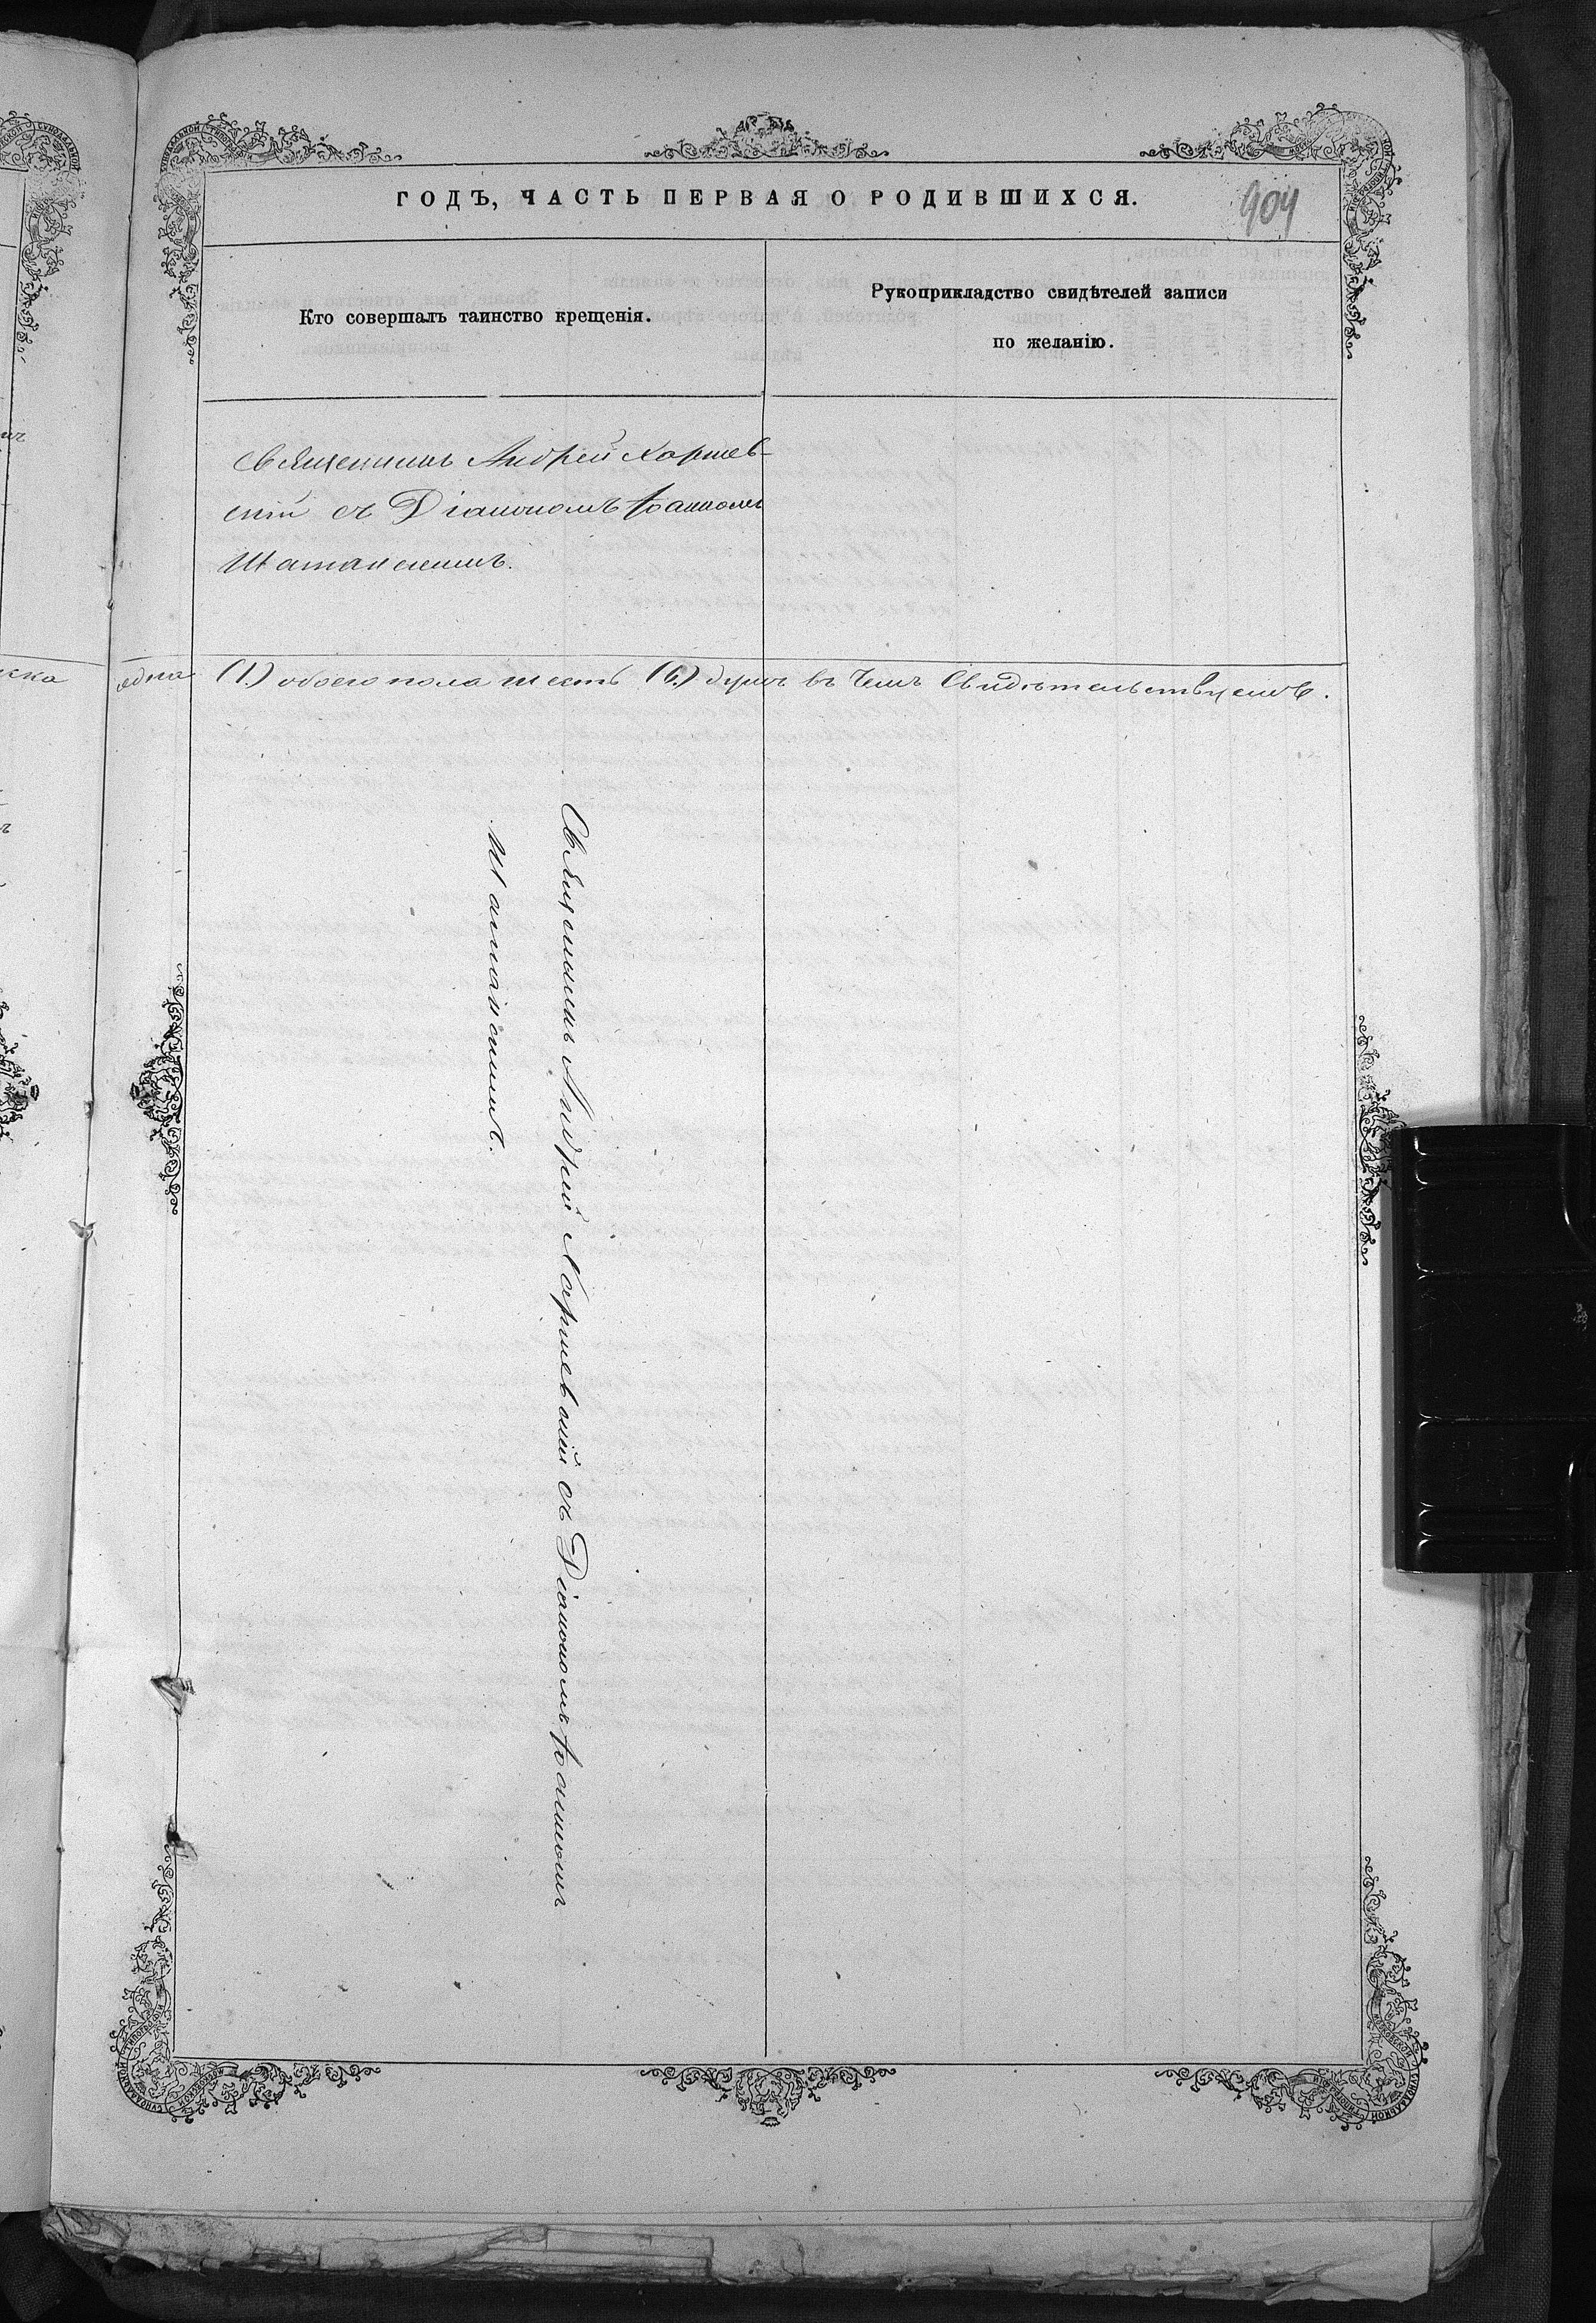 ГОДЪ, ЧАСТЬ ПЕРВАЯ О РОДИВШИХСЯ.
904
Кто совершалъ таинство крещенія.
Рукоприкладство свидѣтелей записи
по желанію.
Священникъ Андрей Коршев-
скій съ Діакономъ Іоанномъ
Шатанскимъ.
одна (1.) обоего пола шесть (6.) душъ въ чемъ Свидѣтельствуемъ.
Священникъ Андрей Коршевскій съ Діакономъ Іоанномъ
Шатанскимъ.